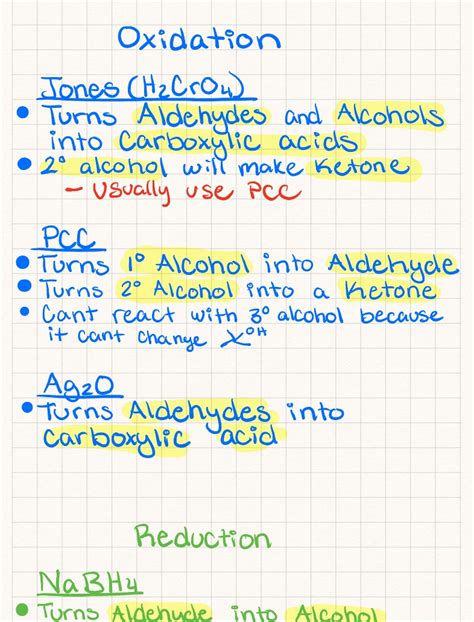 Oxidation
Jones (H₂CrO₄)
• Turns Aldehydes and Alcohols
into Carboxylic acids
• 2° alcohol will make Ketone
- Usually use PCC
PCC
• Turns 1° Alcohol into Aldehyde
• Turns 2° Alcohol into a Ketone
• Cant react with 3° alcohol because
it cant change OH
Ag₂O
• Turns Aldehydes into
carboxylic acid
Reduction
NaBH₄
• Turns Aldehyde into Alcohol